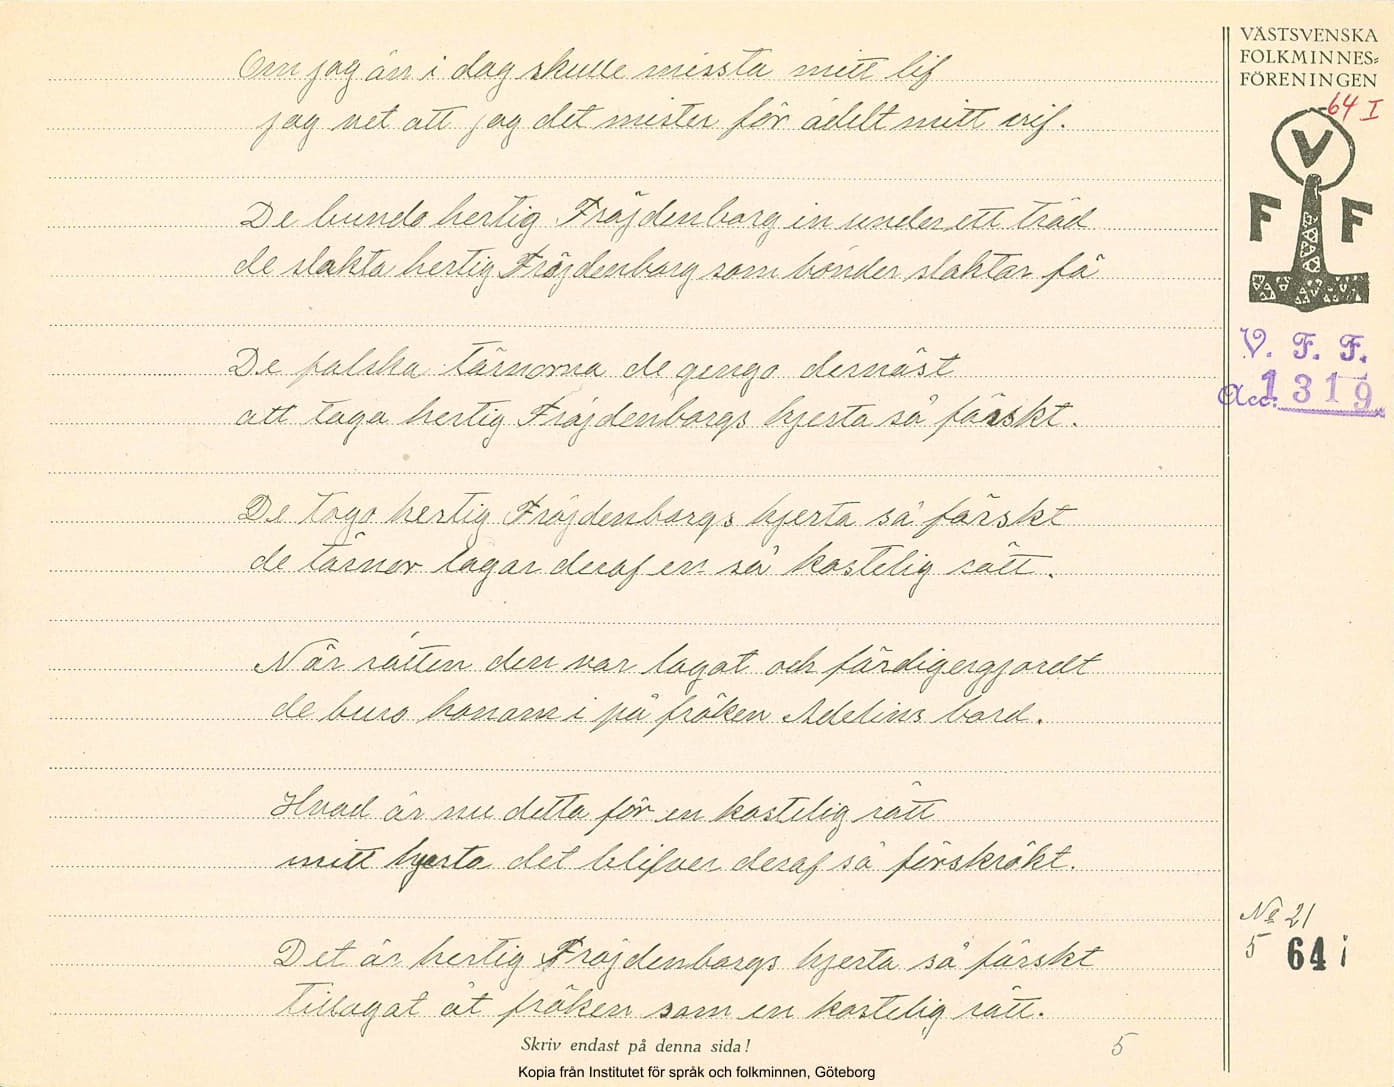 Om jag än i dag skulle missta mitt lif
jag vet att jag det mister för ädelt mitt vif.
De bundo hertig Fröjdenborg in under ett träd
de slakta hertig Fröjdenborg som bönder slaktar fä
De falska tärnorna de gingo dernäst
att taga hertig Fröjdenborgs hjerta så färskt.
De togo hertig Fröjdenborgs hjerta så färskt
de tärnor lagar deraf en så kostelig rätt.
När rätten den var lagat och färdigergjordt
de buro honom i på fröken Adelins bord.
Hvad är nu detta för en kostelig rätt
mitt hjerta det blifver deraf så förskräkt.
Det är hertig Fröjdenborgs hjerta så färskt
tillagat åt fröken som en kostelig rätt.
Skriv endast på denna sida!
5
Kopia från Institutet för språk och folkminnen, Göteborg
VÄSTSVENSKA
FOLKMINNES-
FÖRENINGEN
64 I
V
F F
V. F. F.
Acc. 1319
No 21
5 64 i